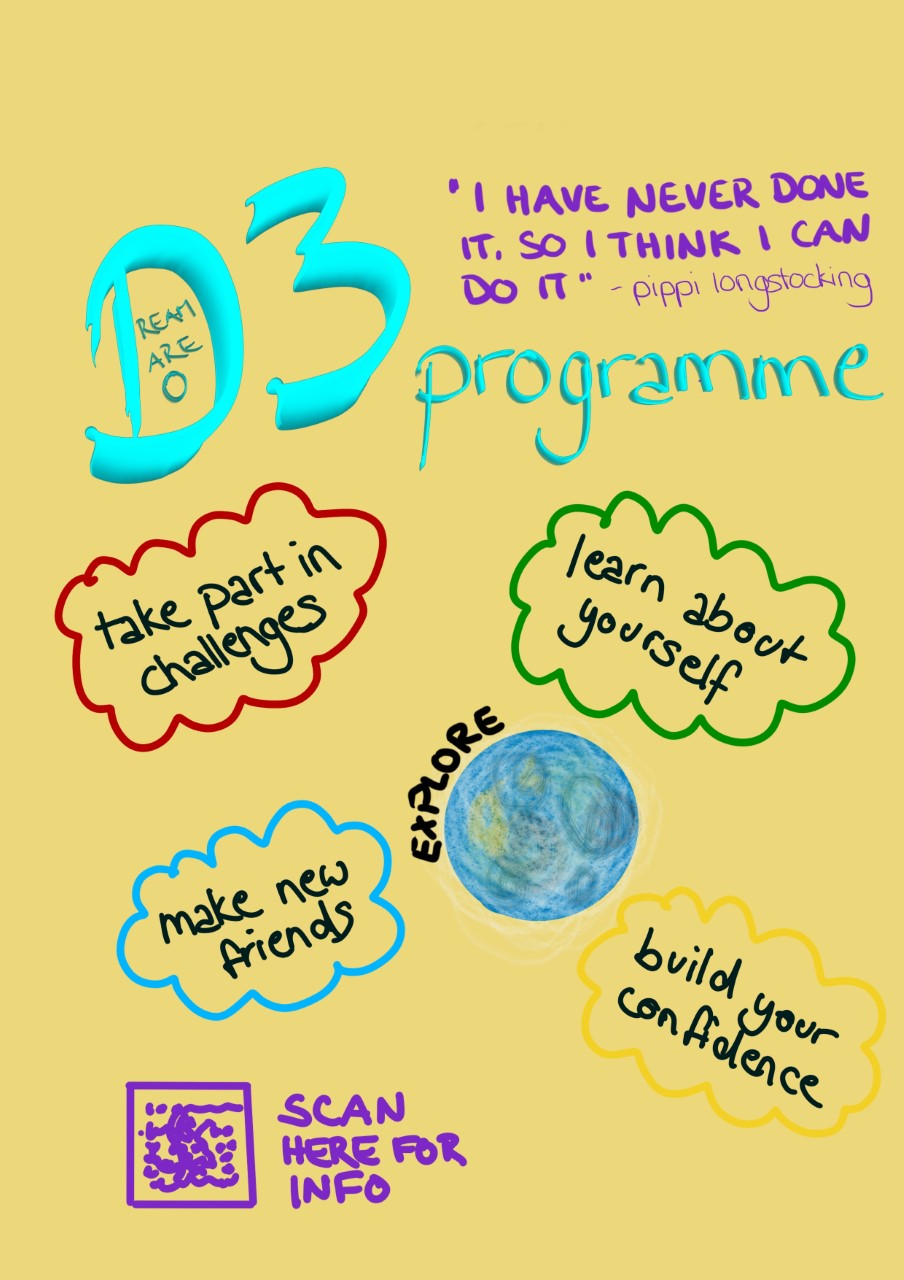 D3
REAM
ARE
O
"I HAVE NEVER DONE
IT. SO I THINK I CAN
DO IT" - pippi longstocking
programme
take part in
challenges
learn about
yourself
EXPLORE
make new
friends
build your
confidence
SCAN
HERE FOR
INFO